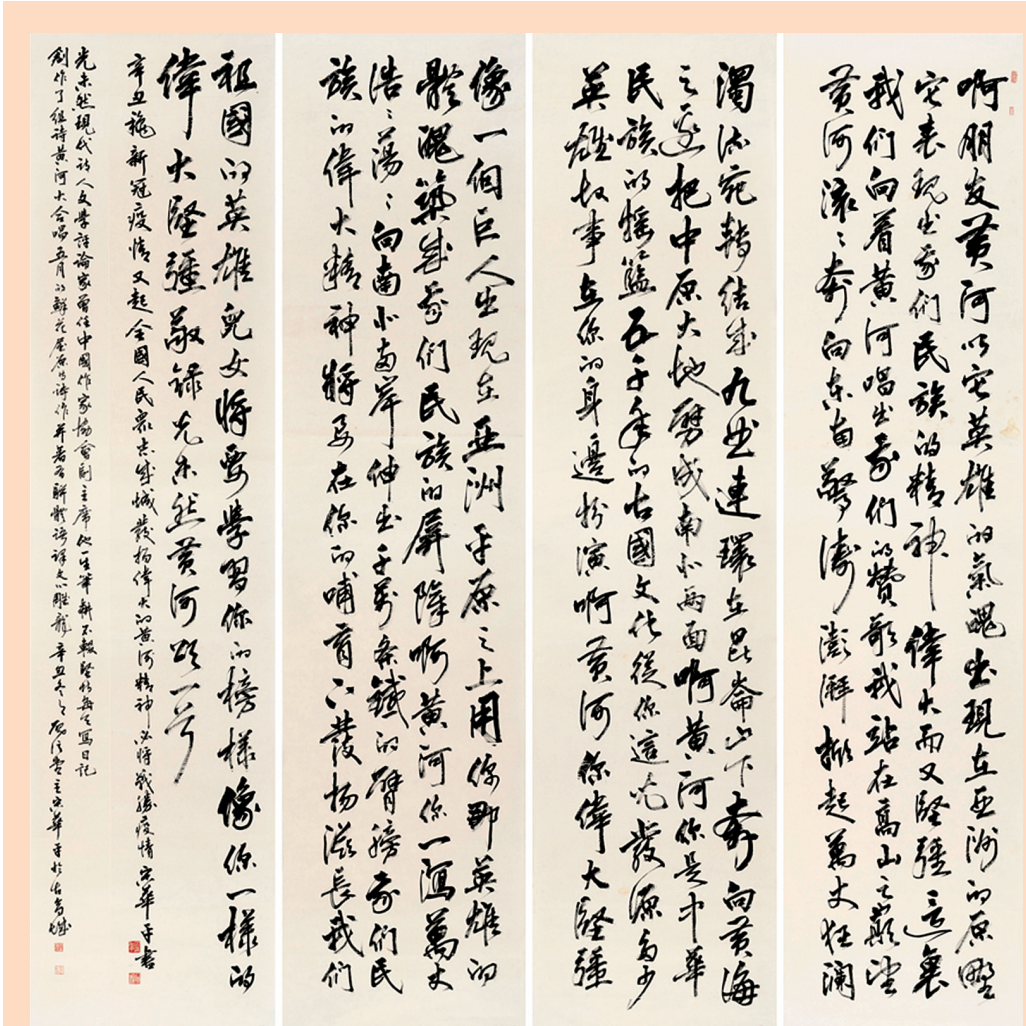 啊朋友黃河以它英雄的氣魄出現在亞洲的原野
它表現出我們民族的精神偉大而又堅強這裏
我們向着黃河唱出我們的贊歌我站在高山之巔望
黃河滾滾奔向東南驚濤澎湃掀起萬丈狂瀾
濁流宛轉結成九曲連環在昆崙山下奔向黃海
之邊把中原大地劈成南北兩面啊黃河你是中華
民族的搖籃五千年的古國文化從你這兒發源多少
英雄故事在你的身邊扮演啊黃河你偉大堅強
像一個巨人出現在亞洲平原之上用你那英雄的
體魄築成我們民族的屏障啊黃河你一瀉萬丈
浩浩蕩蕩向南北兩岸伸出千萬條鐵的臂膀我們民
族的偉大精神將要在你的哺育下發揚滋長我們
祖國的英雄兒女將要學習你的榜樣像你一樣的
偉大堅強敬錄光未然黃河頌一首
辛丑 新冠疫情又起全國人民衆志成城發揚偉大的黃河精神必將戰勝疫情 華平書
光未然現代詩人文學評論家曾任中國作家協會副主席他一生筆耕不輟堅持每天寫日記
創作了組詩黃河大合唱五月的鮮花屈原 詩作并著有駢體語譯文心雕龍辛丑冬 主 華平於古 城